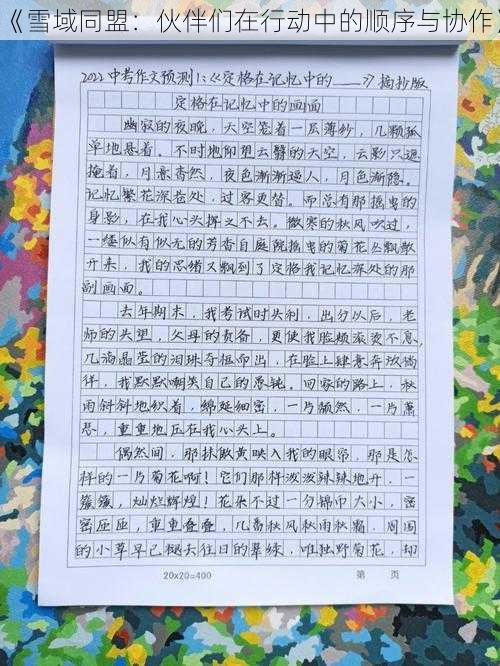 《雪域同盟：伙伴们在行动中的顺序与协作
2022中考作文预测1：《定格在记忆中的____》摘抄版
定格在记忆中的画面
幽寂的夜晚，天空笼着一层薄纱，几颗孤
单地悬着。不时地仰望云翳的天空，云影只遮
掩着，月意杳然，夜色渐渐逼人，月色渐隐。
记忆繁花深巷处，过客更替。而总有那摇曳的
身影，在我心头挥之不去。微寒的秋风吹过，
一缕似有似无的芳香自庭院摇曳的菊花丛飘散
开来，我的思绪又飘到了定格我记忆深处的那
副画面。
去年期末，我考试时失利，出分以后，老
师的失望，父母的责备，更使我脸颊滚烫不息，
几滴晶莹的泪珠夺框而出，在脸上肆意奔放徜
徉，我默默嘲笑自己的愚钝。回家的路上，秋
雨斜斜地织着，绵延细密，一片颓然，一片萧
瑟，重重地压在我心头上。
偶然间，那抹傲黄映入我的眼帘，那是怎
样的一片菊花啊！它们那样泼泼辣辣地开，一
簇簇，灿烂辉煌！花朵不过一分锦币大小，密
密匝匝，重重叠叠，几番秋风秋雨秋霜，周围
的小草早已褪去往日的翠绿，唯独野菊花，却
20×20=400
第 页